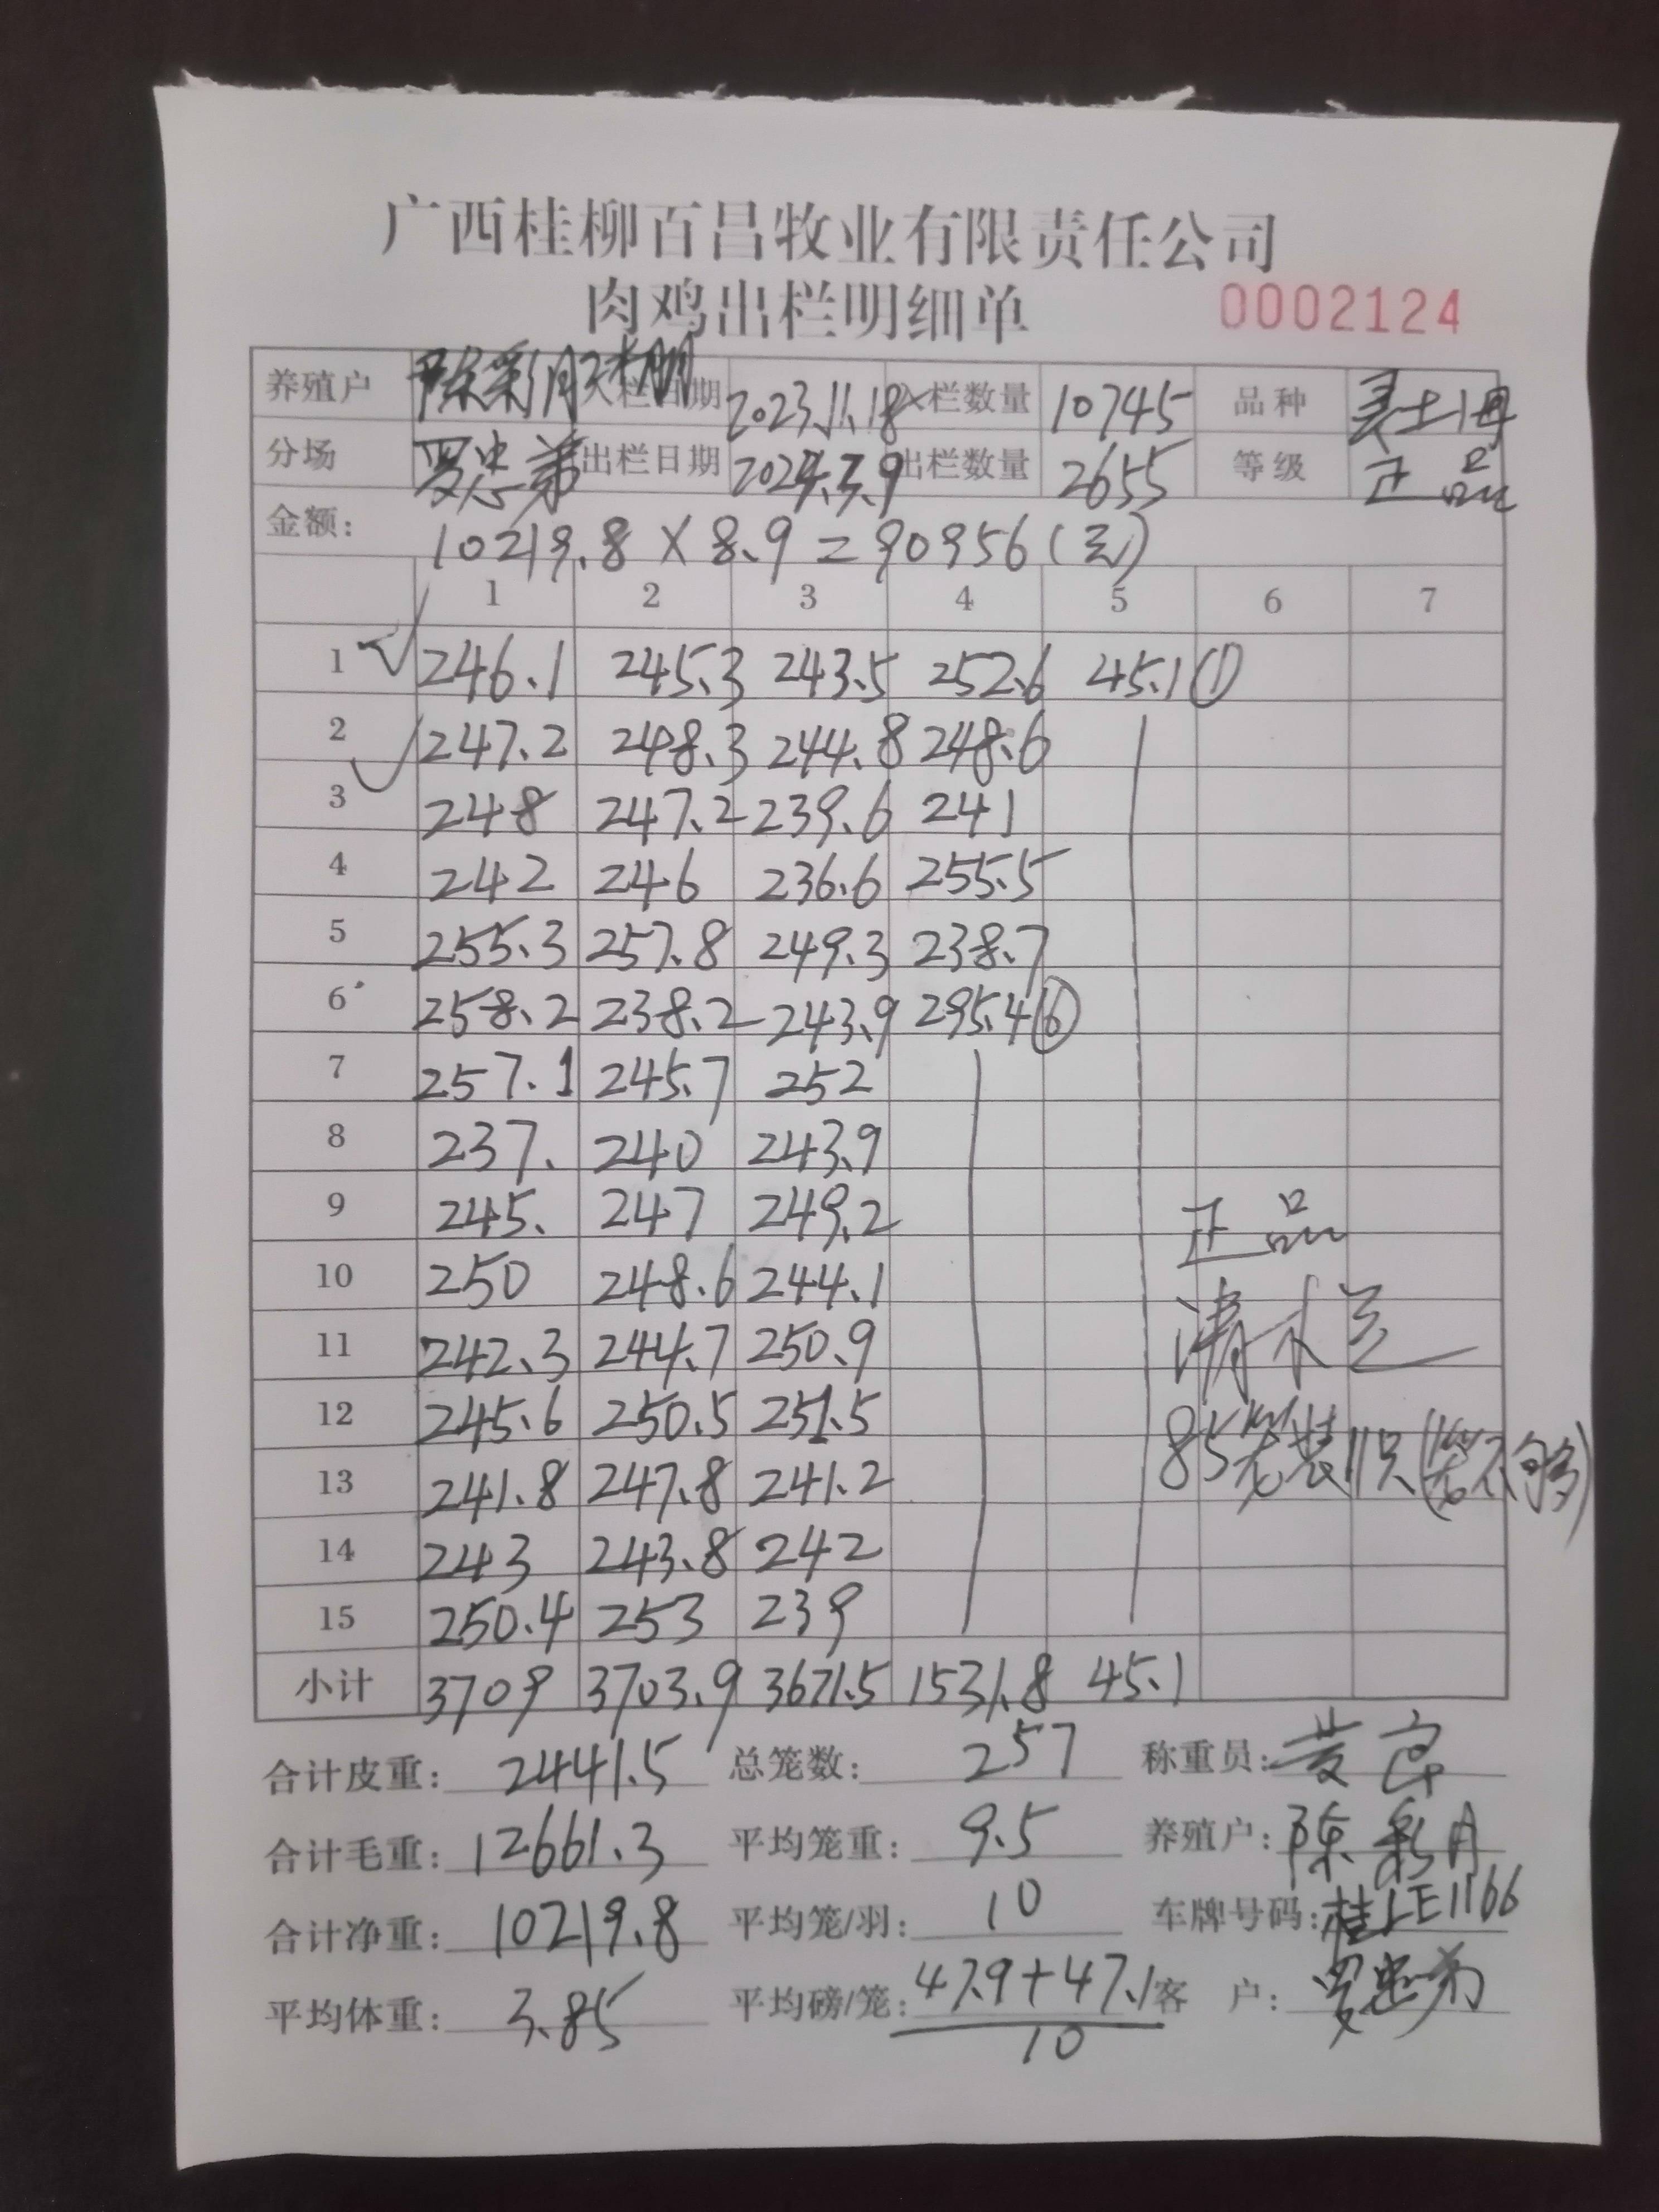 广西桂柳百昌牧业有限责任公司
肉鸡出栏明细单 0002124
养殖户 陈彩月 入栏日期 2023.11.18 入栏数量 10745 品种
分场 罗忠弟 出栏日期 2024.3.9 出栏数量 2655 等级 正品
金额: 10219.8×8.9=90956(元)
1 2 3 4 5 6 7
1 246.1 245.3 243.5 252.6 45.1 ①
2 247.2 248.3 244.8 248.6
3 248 247.2 239.6 241
4 242 246 236.6 255.5
5 255.3 257.8 249.3 238.7
6 258.2 238.2 243.9 295.4 ⑥
7 257.1 245.7 252
8 237. 240 243.9
9 245. 247 249.2
正品
10 250 248.6 244.1
11 242.3 244.7 250.9
12 245.6 250.5 251.5
85笼装11只(笼不够)
13 241.8 247.8 241.2
14 243 243.8 242
15 250.4 253 239
小计 3709 3703.9 3671.5 1531.8 45.1
合计皮重: 2441.5 总笼数: 257 称重员:
合计毛重: 12661.3 平均笼重: 9.5 养殖户: 陈彩月
合计净重: 10219.8 平均笼/羽: 10 车牌号码: 桂LE1166
平均体重: 3.85 平均磅/笼: 47.9+47.1 客户: 罗忠弟
10